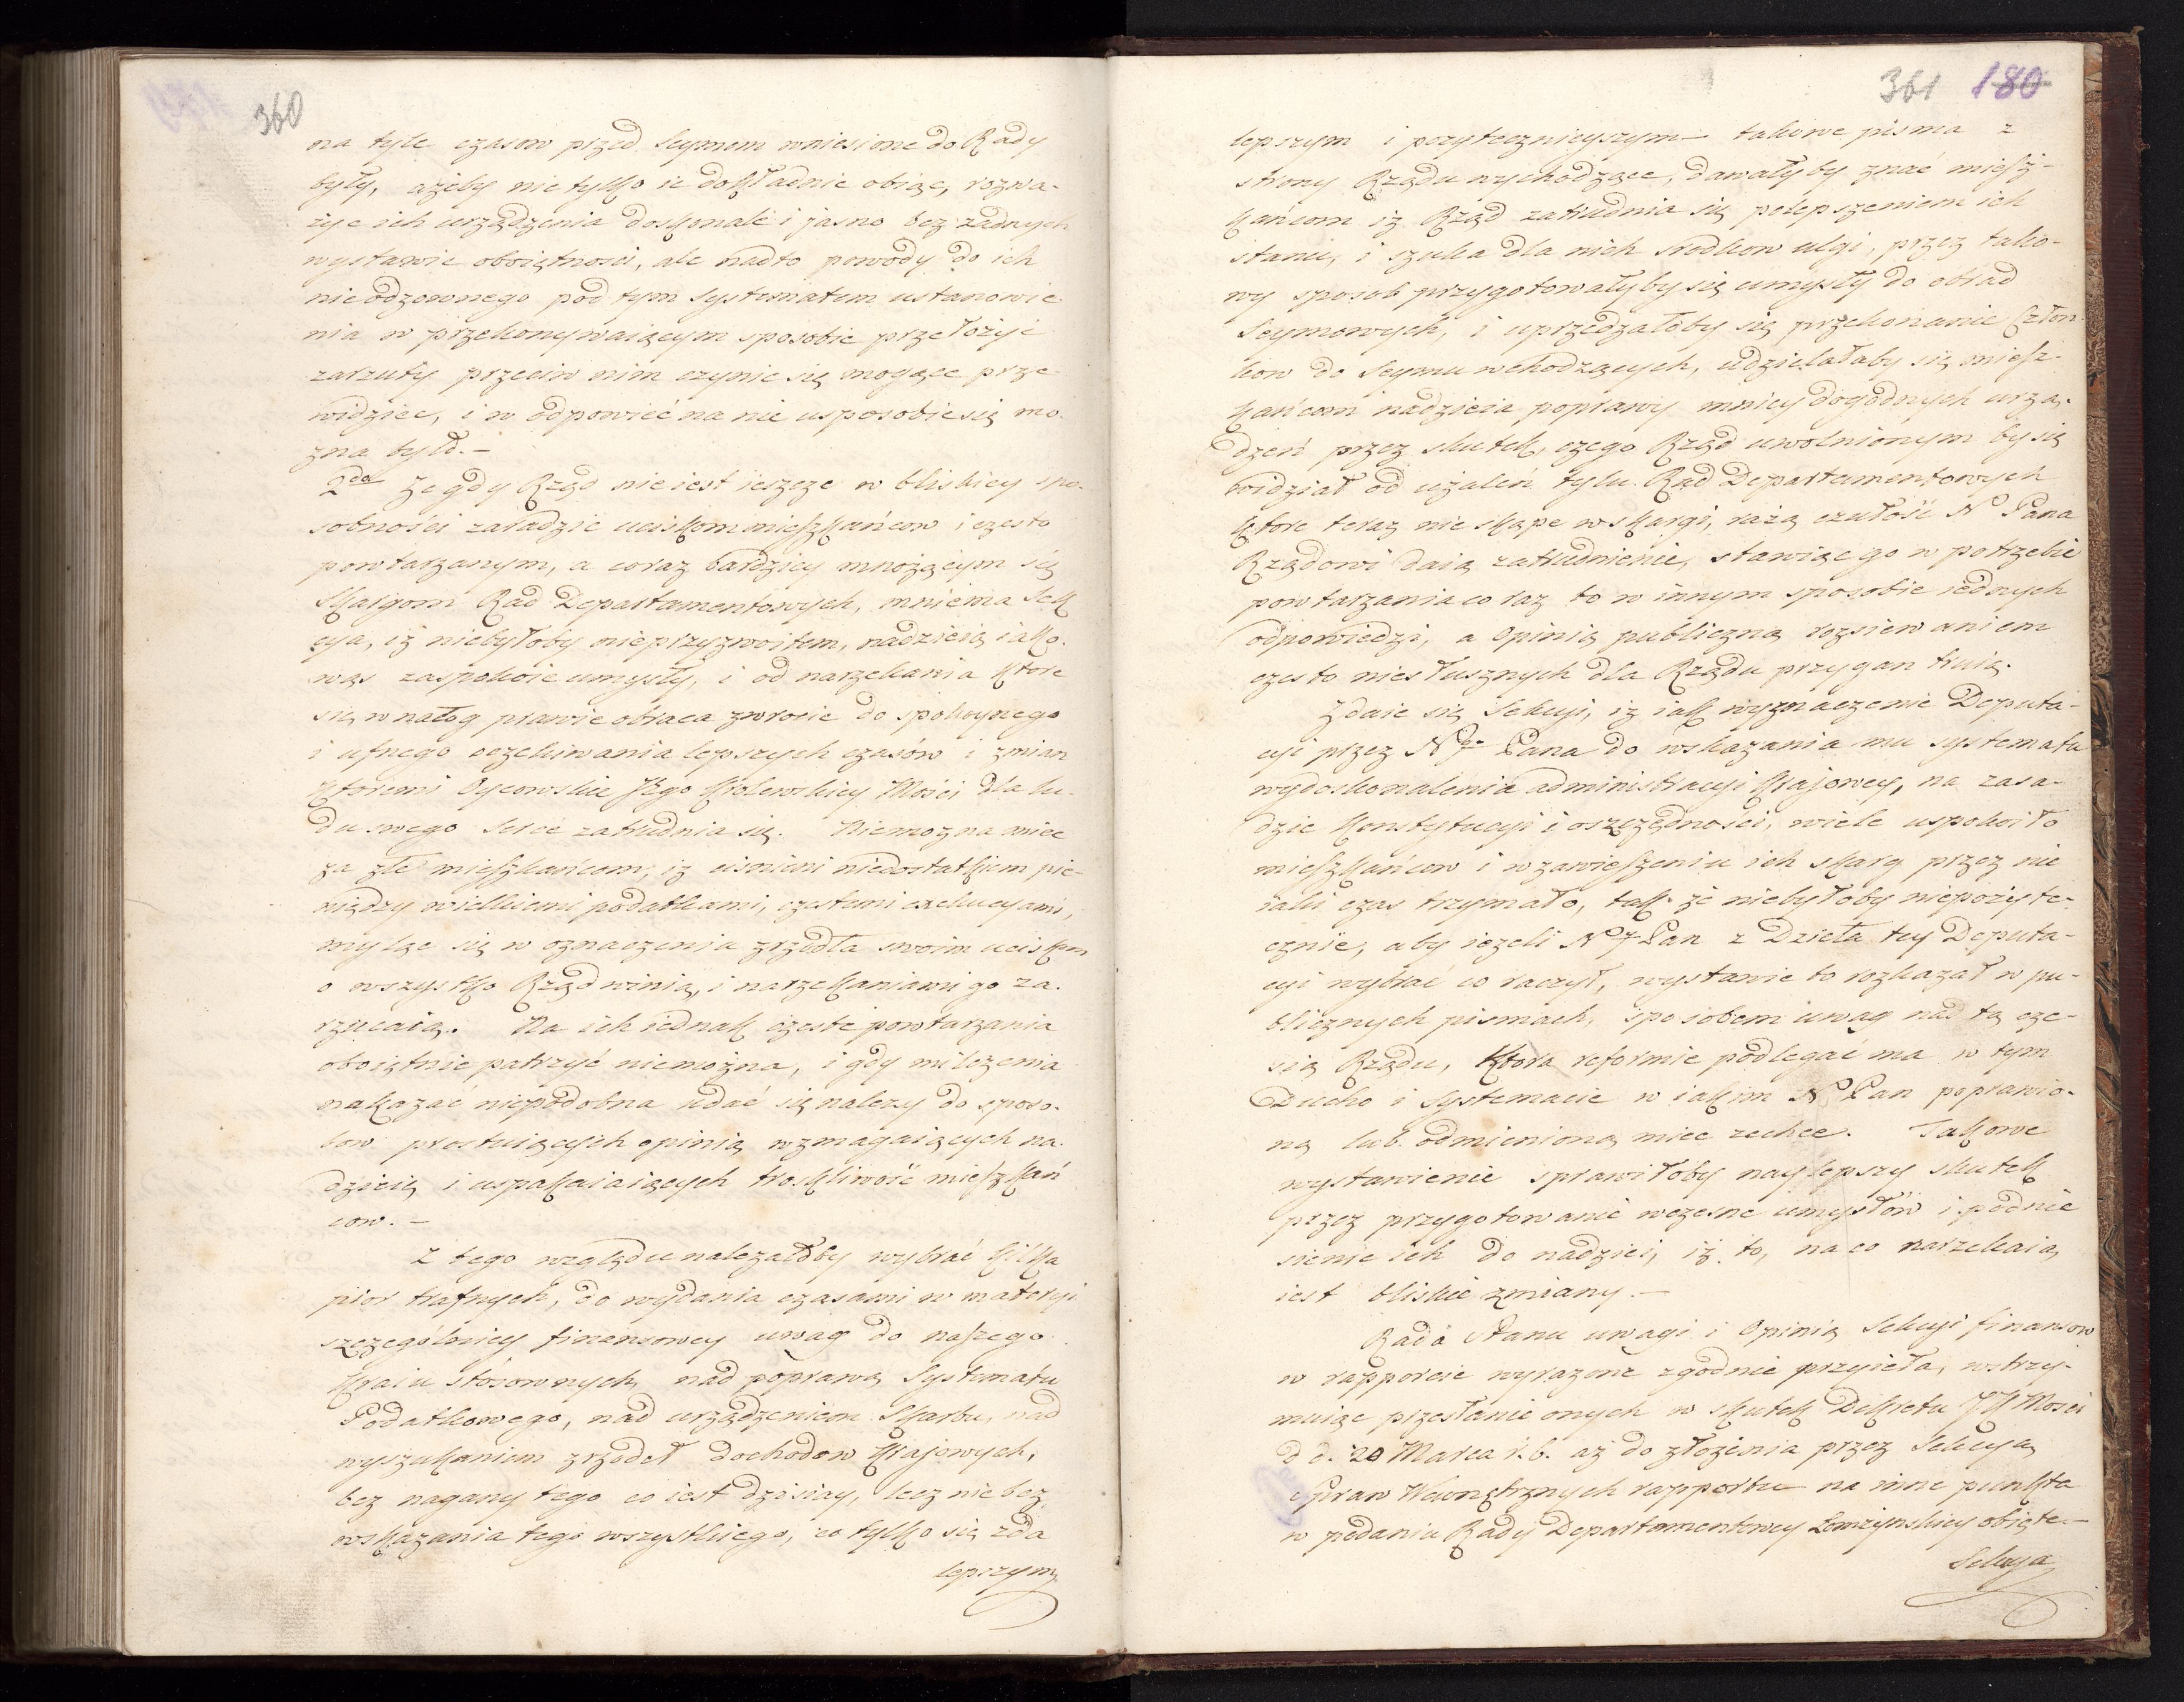 360
na tyle czasow przed Seymem wniesione do Rady
były, ażeby nie tylko ie dokładnie obiąć, rozwa-
żyć ich urządzenia doskonale i jasno bez żadnych
wystawić oboiętności, ale nadto powody do ich
nieodzownego pod tym Systematem ustanowie
nia w przekonywaiącym sposobie przełożyć
zarzuty przeciw nim czynić się mogące prze
widziec, i w odpowieć na nie usposobić się mo-
zna było. –
2do Ze gdy Rząd nie iest ieszcze w bliskiey spo-
sobności zaradzić uciskom mieszkańcow i często
powtarzanym, a coraz bardziey mnożącym się
Skargom Rad Departamentowych, mniema Sek
cya, iż niebyłoby nieprzyzwoitem, nadzieią iako-
wąs zaspokoić umysły, i od narzekania ktore
się w nałog prawie obraca zwrocić do spokoynego
i ufnego oczekiwania lepszych czasów i zmian
ktoremi Oycowskie Jego Krolewskiey Mości dla lu-
du swego Serce zatrudnia się. Niemozna miec
za złe mieszkańcom, iz uisnieni niedostatkiem pie-
niędzy wielkiemi podatkami, częstemi exekucyami,
myląc się w oznaczenia zrzodła swoim uciskom
o wszystko Rząd winią, i narzekaniami go za-
rzucaią. Na ich iednak częste powtarzania
oboiętnie patrzyć niemożna, i gdy milczenia
nakazać niepodobna udać się nalezy do sposo-
bow prostuiących opinią wzmagaiących na-
dzieię i uspakaiaiących troskliwość mieszkań
cow. –
Z tego względu należałoby wybrać kilka
pior trafnych, do wydania czasami w materyi
szczegolniey finansowey uwag do naszego
Kraiu stosownych, nad poprawą Systematu
Podatkowego, nad urządzeniem Skarbu, nad
wyszukaniem zrzodeł dochodow Krajowych,
bez nagany tego co iest dzisiay, lecz nie bez
wskazania tego wszystkiego, co tylko się zda
lepszym
361 180
lepszym i pożytecznieyszym – takowe pisma z
strony Rządu wychodzące, dawałyby znać miesz-
kańcom iz Rząd zatrudnia się polepszeniem ich
stanu, i szuka dla nich srodkow ulgi, przez tako-
wy sposob przygotowałyby się umysły do obrad
Seymowych, i uprzedzałoby się przekonanie Człon-
kow do Seymu wchodzących, udzielałaby się miesz-
kańcom nadzieia poprawy mniey dogodnych urzą-
dzeń przez skutek, czego Rząd uwolnionym by się
widział od użaleń tylu Rad Departamentowych
ktore teraz nie skąpe w skargi, rażą czułość N Pana
Rządowi daią zatrudnienie, stawiąc go w potrzebie
powtarzania coraz to w innym sposobie iednych
odpowiedzi, a Opinią publiczną rozsiewaniem
często niesłusznych dla Rządu przygan truią.
Zdaie się Sekcyi, iż iak wyznaczenie Deputa-
cyi przez N Pana do wskazania mu systematu
wydoskonalenia administracyi Krajowey, na zasa-
dzie Konstytucyi i oszczędności, wiele uspokoiło
mieszkańcow i w zawieszeniu ich skarg przez nie
iaki czas trzymało, tak że niebyłoby niepożyte-
cznie, aby ieżeli N Pan z Dzieła tey Deputa-
cyi wybrać co raczył, wystawić to rozkazał w pu-
blicznych pismach, sposobem uwag nad tą czę-
scią Rządu, ktora reformie podlegać ma w tym
Duchu i Systemacie w iakim N Pan poprawio-
ną lub odmienioną mieć zechce. Takowe
wystawienie sprawiłoby naylepszy skutek
przez przygotowanie wczesne umysłów i podnie
sienie ich do nadziei, iż to, na co narzekaią
iest bliskie zmiany. –
Rada Stanu uwagi i Opinią Sekcyi finansow
w rapporcie wyrazone zgodnie przyięła, wstrzy-
muiąc przesłanie onych w skutek Dekretu J. K Mosci
d d. 20 Marca r. b. aż do złożenia przez Sekcyą
Spraw Wewnętrznych rapportu na inne punkta
w podaniu Rady Departamentowey Łomżynskiey obięte. –
Sekcya